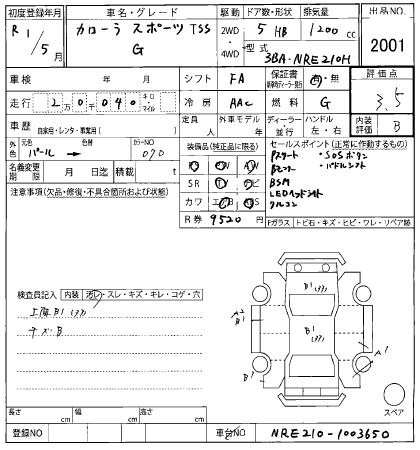 初度登録年月 車名・グレード 駆動 ドア数・形状 排気量 出品NO.
R1/5月 カローラ スポーツ TSS 2WD 5 HB 1200 cc 2001
G 4WD 型式 3BA-NRE210H
車検 年 月 シフト FA 保証書 有・無 評価点
走行 2万0千040 キロ・マイル 冷房 AAC 燃料 G 3.5
車歴 自家用・レンタ・事業用( ) 定員 人 外車モデル 年 ディーラー・並行 ハンドル 左・右 内装評価 B
外色 元色 パール 色替 カラーNO 070
名義変更期限 月 日迄 積載 t
装備品(純正品に限る) セールスポイント(正常に作動するもの)
SR
カワ
R券 9520 円
Pスタート ・SOSボタン
Bモニター ・パドルシフト
BSM
LEDヘッドライト
クルコン
注意事項(欠品・修復・不具合箇所および状態)
Fガラス トビ石・キズ・ヒビ・ワレ・リペア跡
検査員記入 内装 汚レ・スレ・キズ・キレ・コゲ・穴
B1
キズ・B
A2
B1
B1
B1
A1
B1
スペア
長さ cm 幅 cm 高さ cm
登録NO 車台NO NRE210-1003650